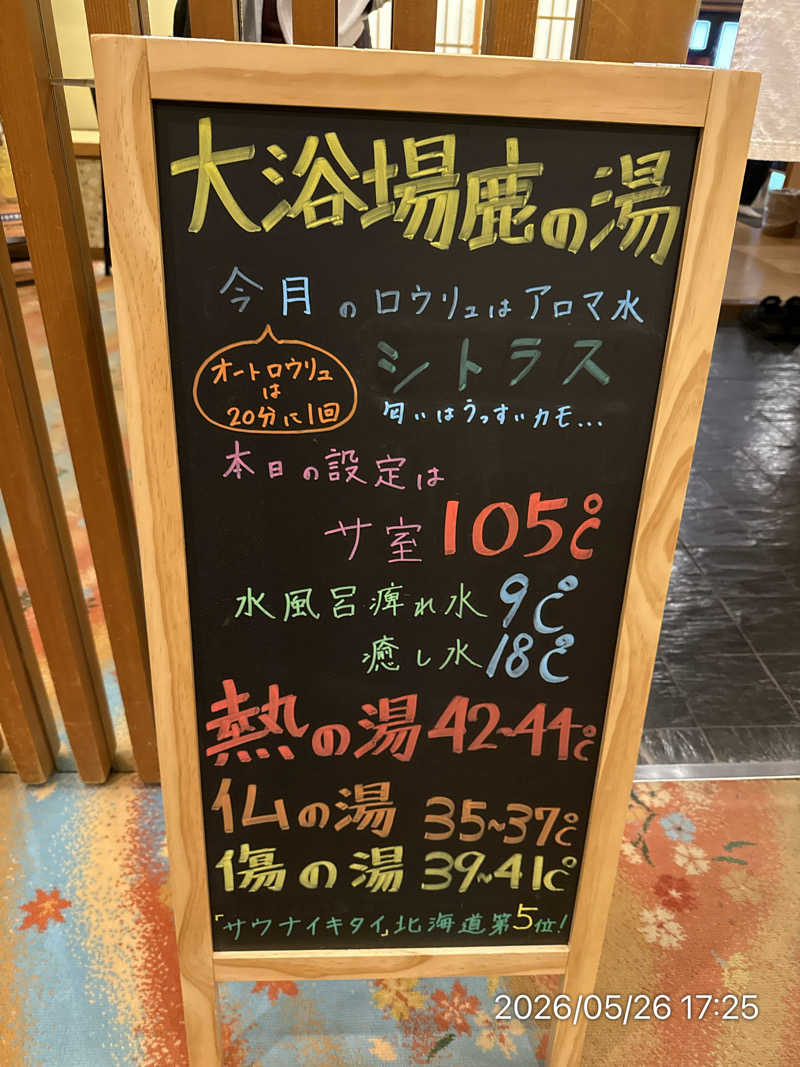 大浴場鹿の湯
今月のロウリュはアロマ水
オートロウリュ
は
20分に1回
シトラス
匂いはうっすいカモ...
本日の設定は
サ室 105℃
水風呂痺れ水 9℃
癒し水 18℃
熱の湯 42~44℃
仏の湯 35~37℃
傷の湯 39~41℃
「サウナイキタイ」北海道第5位!
2026/05/26 17:25